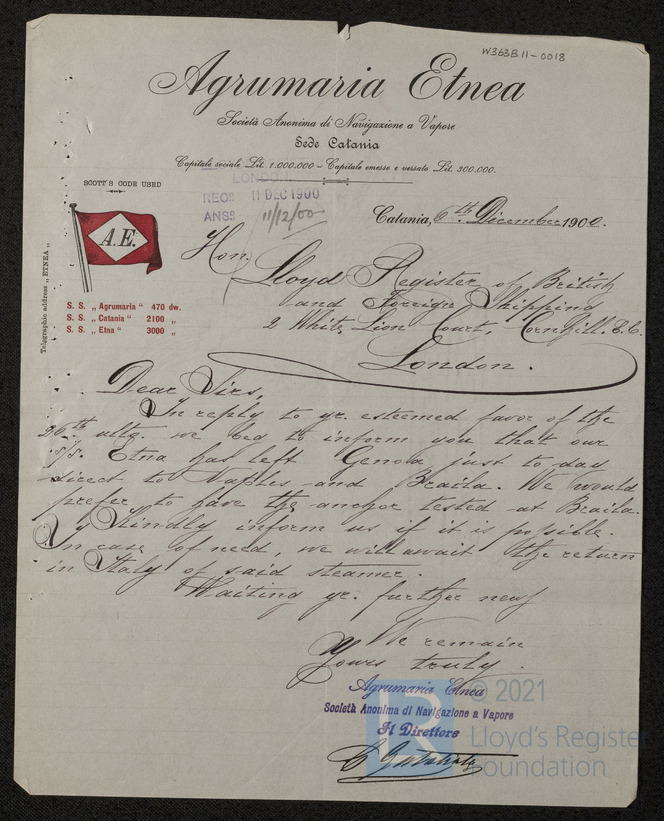 W363B11-0018
Agrumaria Etnea
Società Anonima di Navigazione a Vapore
Sede Catania
Capitale sociale Lit. 1.000.000 – Capitale emesso e versato Lit. 300.000.
LONDON
REC⁰ 11 DEC 1900
ANS⁰ 11/12/00
SCOTT'S CODE USED
A.E.
Telegraphic address „ ETNEA „
S. S. „ Agrumaria “ 470 dw.
S. S. „ Catania “ 2100 „
S. S. „ Etna “ 3000 „
Catania, 6th Dicember 1900.
Hon.
Lloyd Register of British
and Foreign Shipping
2 White Lion Court, Cornhill. E.C.
London.
Dear Sirs,
In reply to yr. esteemed favor of the
26th ultº. we beg to inform you that our
s/s. Etna has left Genova just to day
direct to Naples and Braila. We would
prefer to have the anchor tested at Braila.
Kindly inform us if it is possible.
In case of need, we will await the return
in Italy of said steamer.
Waiting yr. further news
We remain
Yours truly.
Agrumaria Etnea
Società Anonima di Navigazione a Vapore
Il Direttore
© 2021
Lloyd's Register
Foundation